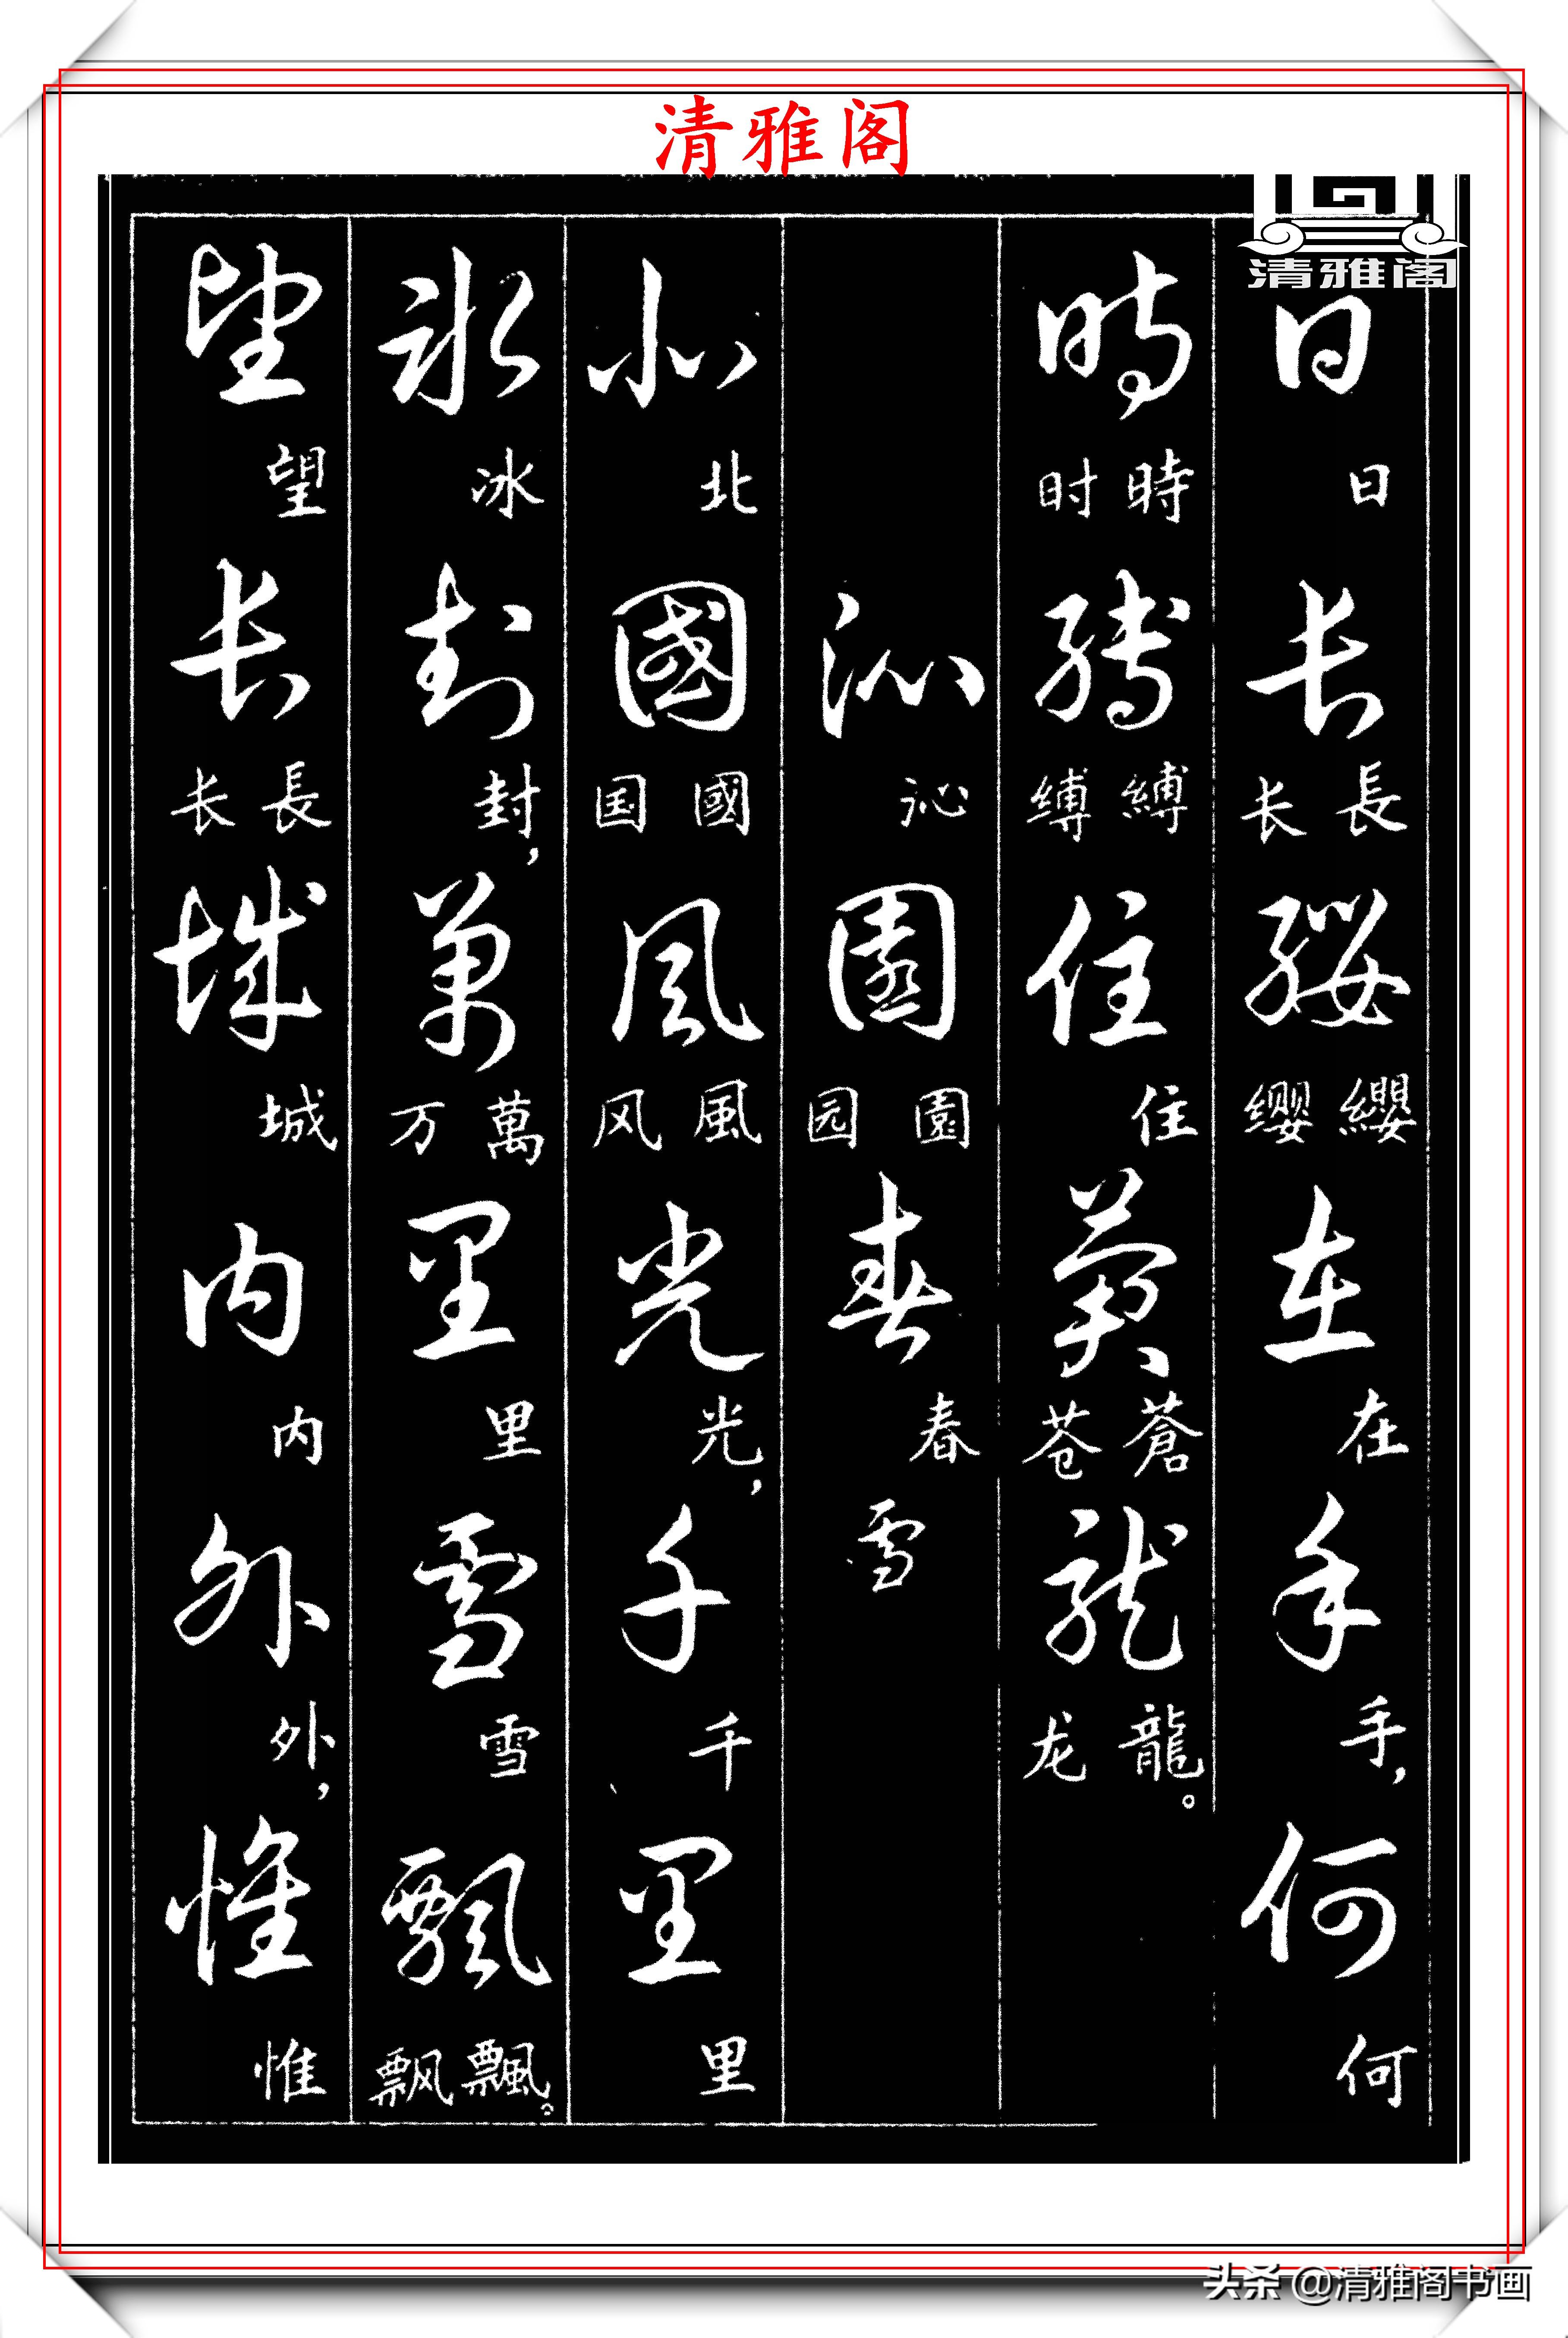 清雅阁
清雅阁
日日长長长纓纓缨在在手手，何何
時時时縛縛缚住住蒼蒼苍龍龍。龙
沁沁園園园春春雪
北北國國国風風风光光，千千里里
冰冰封封，萬萬万里里雪雪飄飄。飘
望望长長长城城内内外外，惟惟
头条 @清雅阁书画